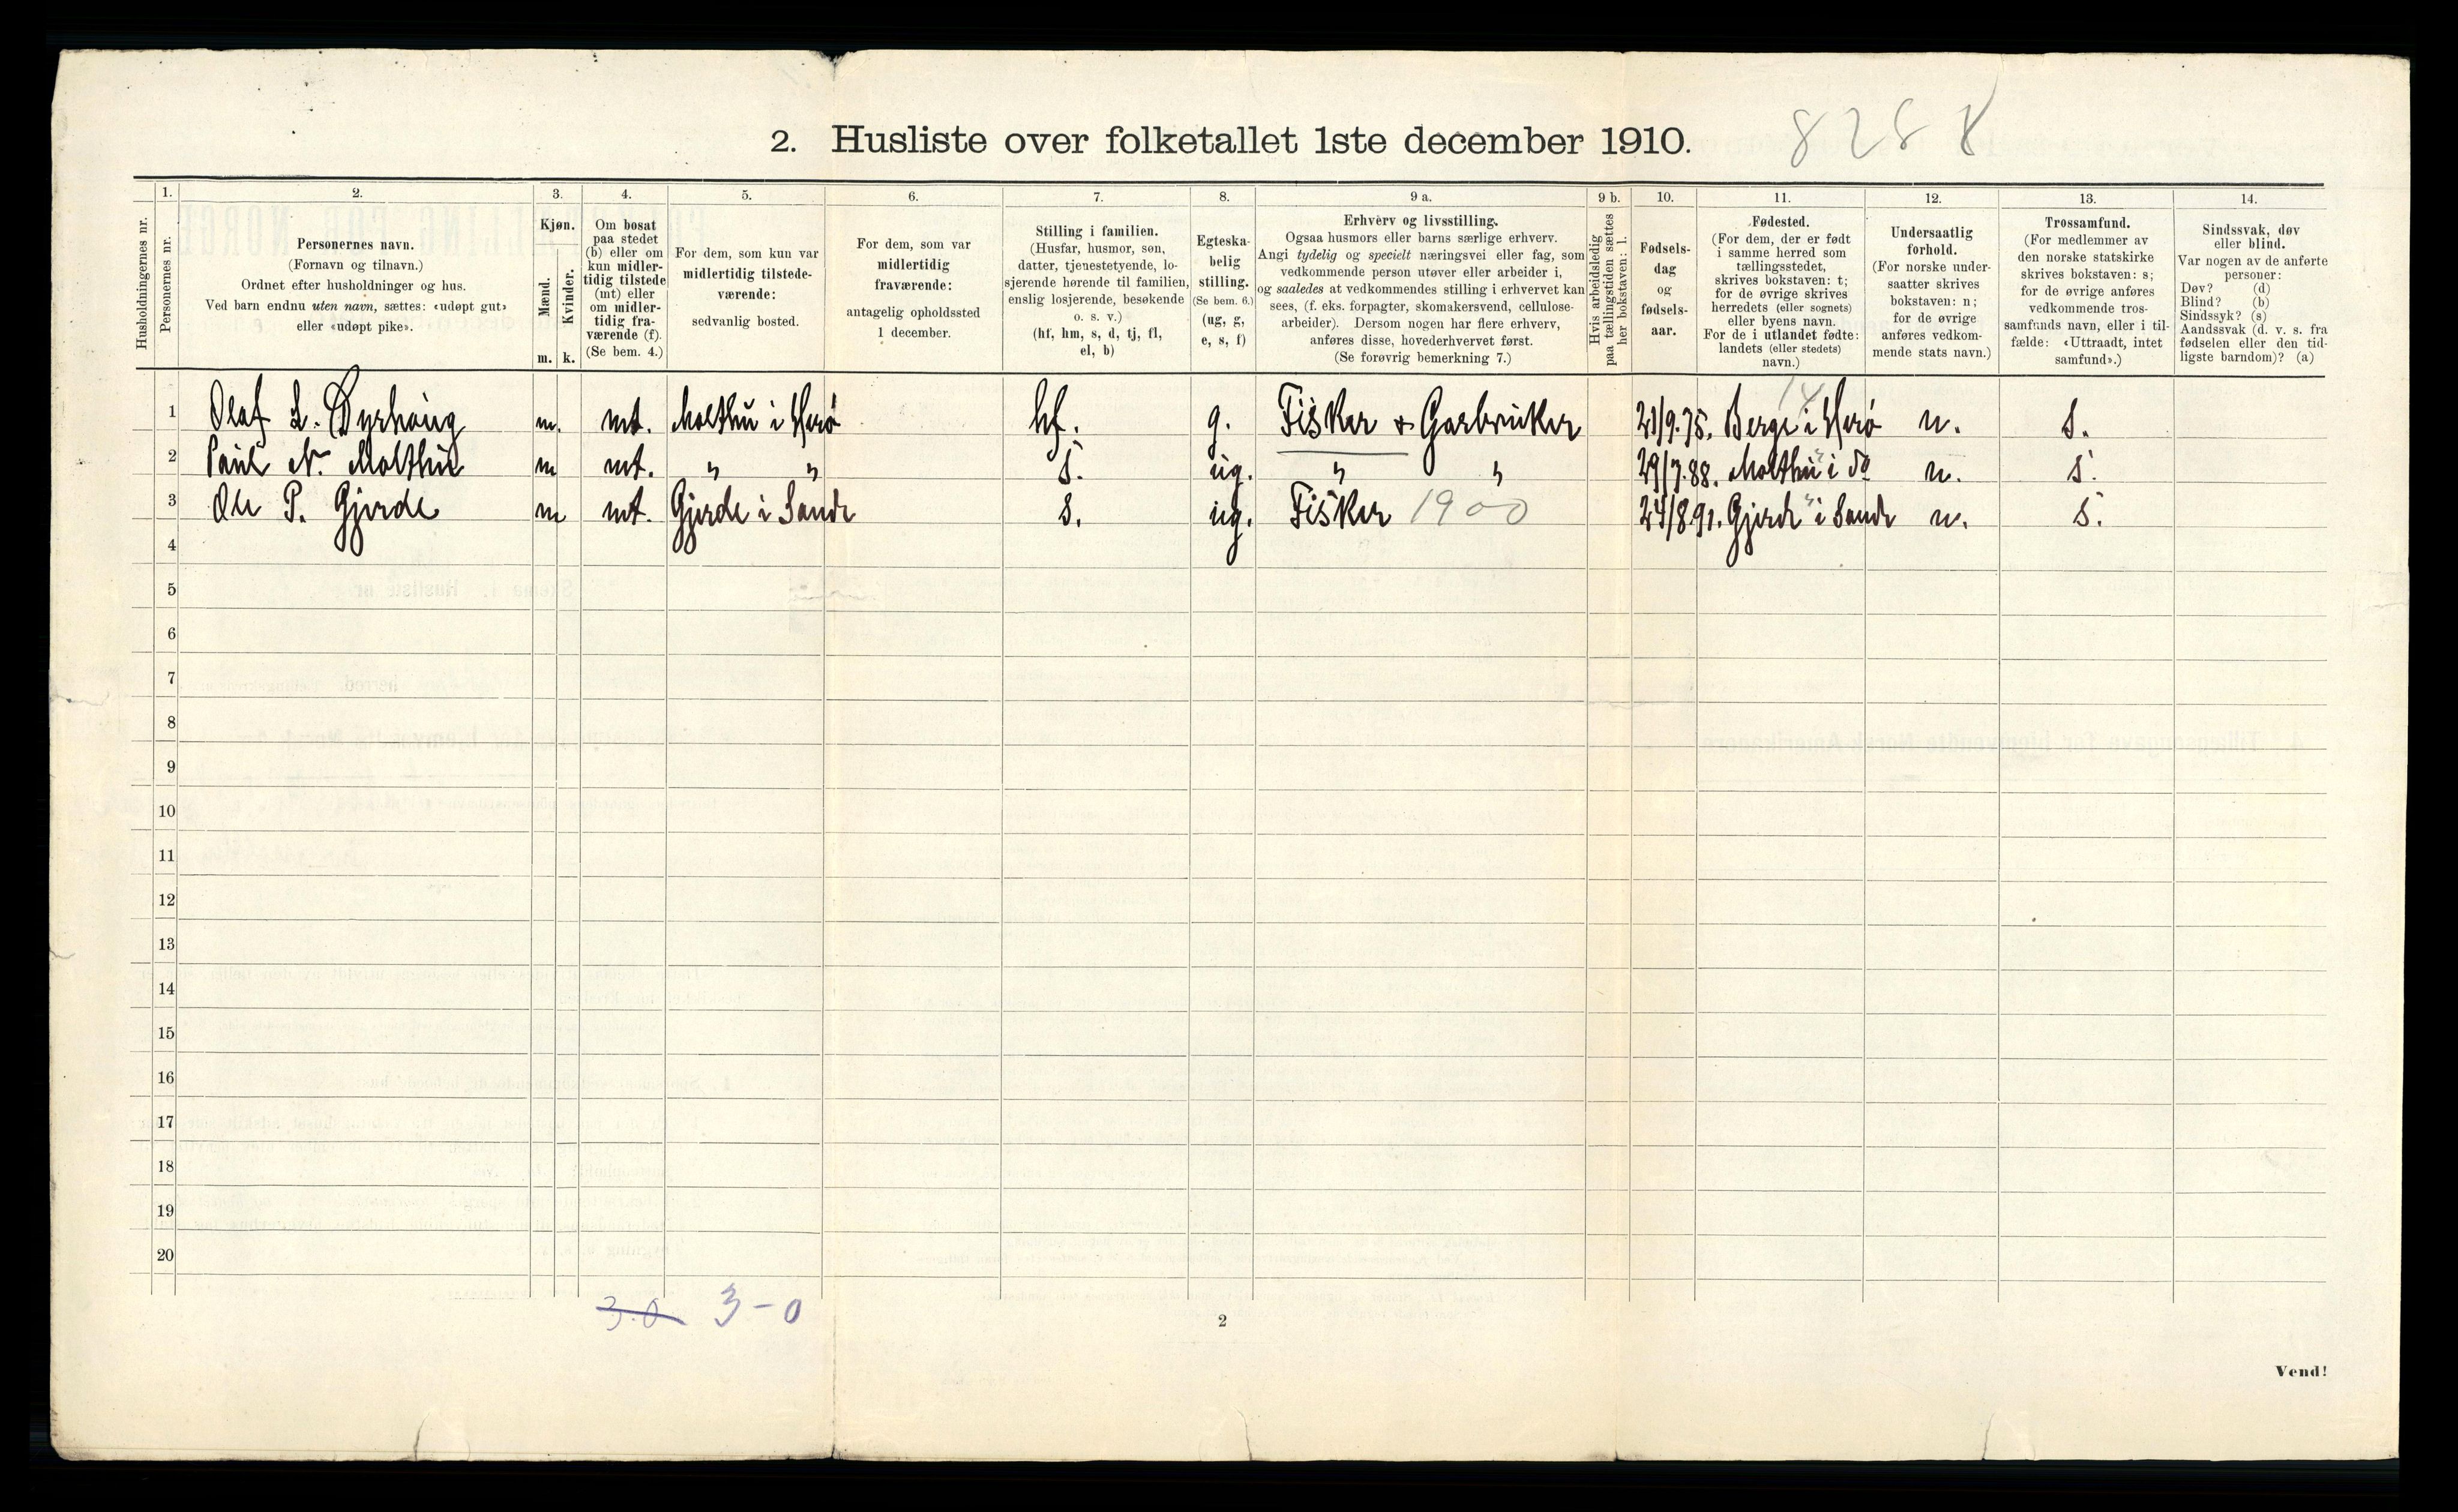 2. Husliste over folketallet 1ste december 1910.
828 8
Husholdningernes nr.
1.
Personernes nr.
2.
Personernes navn.
(Fornavn og tilnavn.)
Ordnet efter husholdninger og hus.
Ved barn endnu uten navn, sættes: «udøpt gut»
eller «udøpt pike».
3.
Kjøn.
Mænd.
Kvinder.
m. k.
4.
Om bosat
paa stedet
(b) eller om
kun midler-
tidig tilstede
(mt) eller
om midler-
tidig fra-
værende (f).
(Se bem. 4.)
5.
For dem, som kun var
midlertidig tilstede-
værende:
sedvanlig bosted.
6.
For dem, som var
midlertidig
fraværende:
antagelig opholdssted
1 december.
7.
Stilling i familien.
(Husfar, husmor, søn,
datter, tjenestetyende, lo-
sjerende hørende til familien,
enslig losjerende, besøkende
o. s. v.)
(hf, hm, s, d, tj, fl,
el, b)
8.
Egteska-
belig
stilling.
(Se bem. 6.)
(ug, g,
e, s, f)
9 a.
Erhverv og livsstilling.
Ogsaa husmors eller barns særlige erhverv.
Angi tydelig og specielt næringsvei eller fag, som
vedkommende person utøver eller arbeider i,
og saaledes at vedkommendes stilling i erhvervet kan
sees, (f. eks. forpagter, skomakersvend, cellulose-
arbeider). Dersom nogen har flere erhverv,
anføres disse, hovederhvervet først.
(Se forøvrig bemerkning 7.)
9 b.
Hvis arbeidsledig
paa tællingstiden sættes
her bokstaven: l.
10.
Fødsels-
dag
og
fødsels-
aar.
11.
Fødested.
(For dem, der er født
i samme herred som
tællingsstedet,
skrives bokstaven: t;
for de øvrige skrives
herredets (eller sognets)
eller byens navn.
For de i utlandet fødte:
landets (eller stedets)
navn.)
12.
Undersaatlig
forhold.
(For norske under-
saatter skrives
bokstaven: n;
for de øvrige
anføres vedkom-
mende stats navn.)
13.
Trossamfund.
(For medlemmer av
den norske statskirke
skrives bokstaven: s;
for de øvrige anføres
vedkommende tros-
samfunds navn, eller i til-
fælde: «Uttraadt, intet
samfund».)
14.
Sindssvak, døv
eller blind.
Var nogen av de anførte
personer:
Døv? (d)
Blind? (b)
Sindssyk? (s)
Aandssvak (d. v. s. fra
fødselen eller den tid-
ligste barndom)? (a)
14
1 Olaf L. Dyrhaug m. mt. Molthu i Herø hf. g. Fisker & Garbruker 21/9.75. Berge i Herø n. s.
2 Paul N. Molthu m mt. " " s. ug. " " 29/7.88. Molthu i do n. s.
3 Ole P. Gjerde m mt. Gjerde i Sande s. ug. Fisker 1900 24/8 91. Gjerde i Sande n. s.
4
5
6
7
8
9
10
11
12
13
14
15
16
17
18
19
20
3.0 3-0
2
Vend!